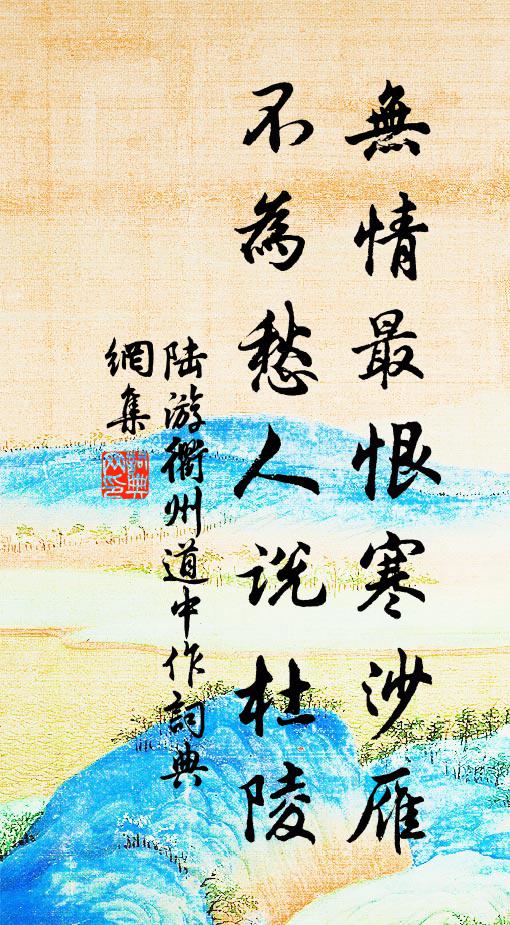 無情最恨寒沙雁
不為愁人說杜陵
陆游衢州道中作詞典
網集